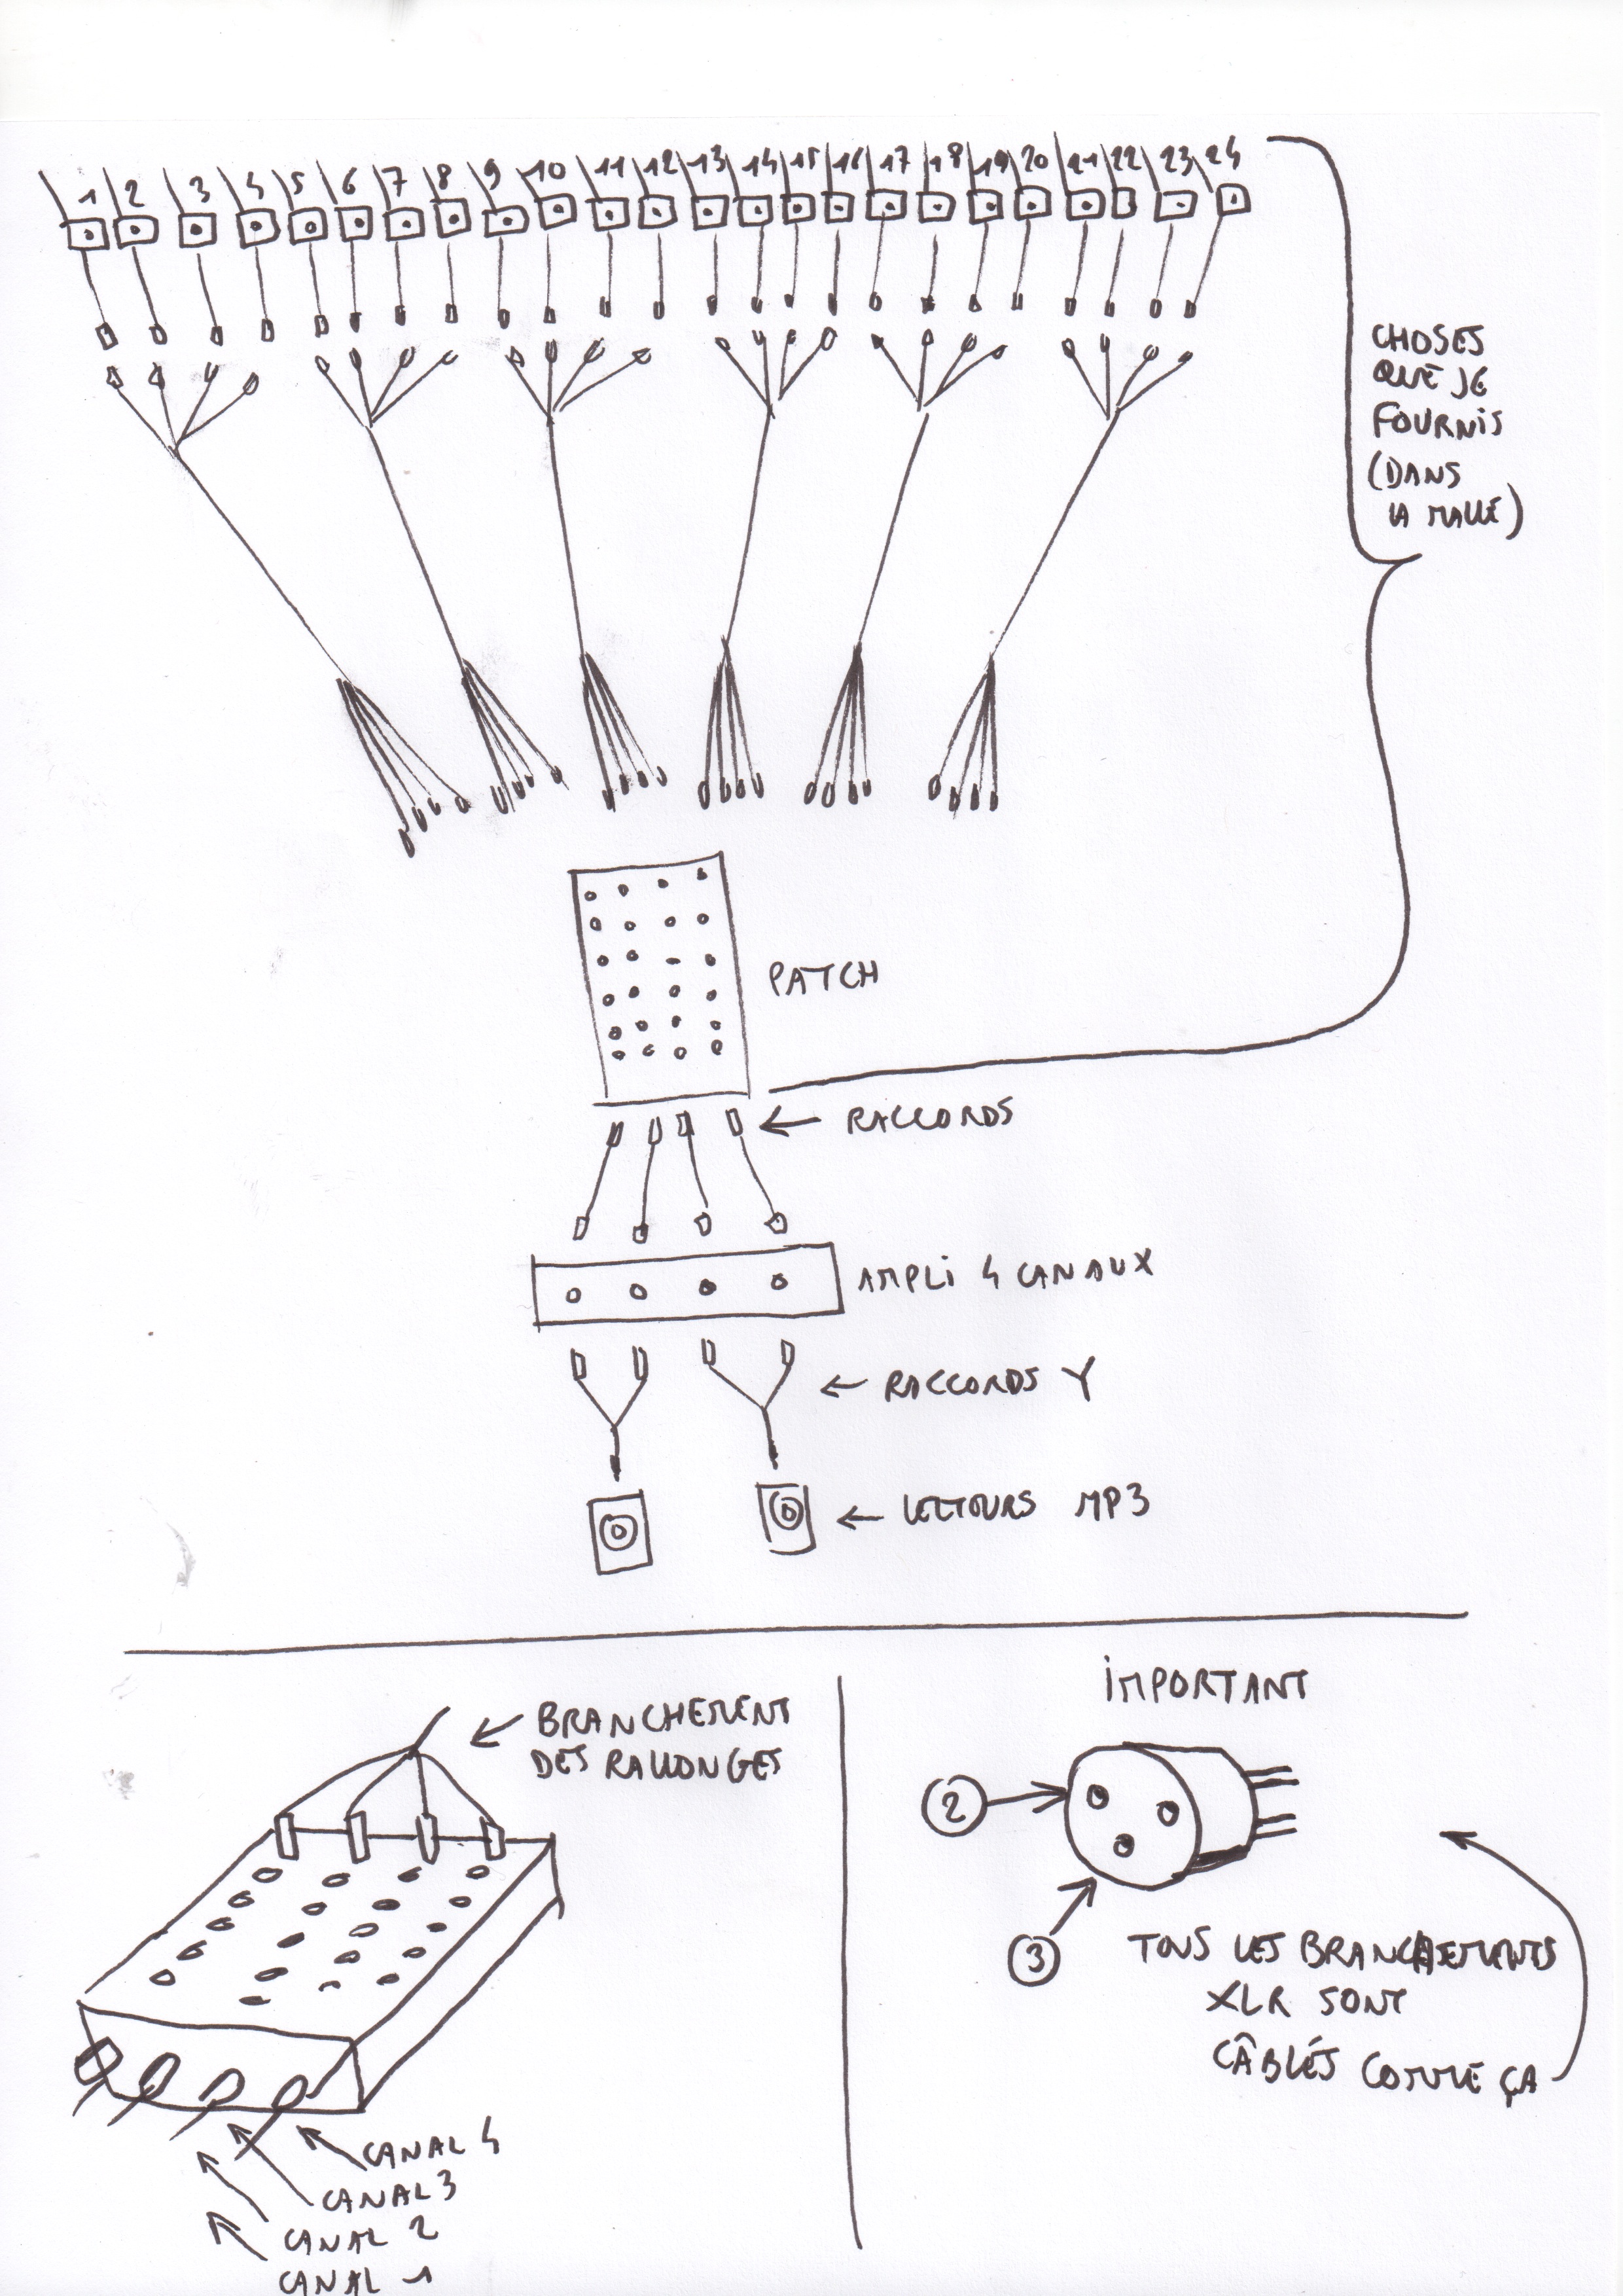 1 2 3 4 5 6 7 8 9 10 11 12 13 14 15 16 17 18 19 20 21 22 23 24
CHOSES
QUE JE
FOURNIS
(DANS
LA MALLE)
PATCH
← RACCORDS
AMPLI 4 CANAUX
← RACCORDS Y
← LECTEURS MP3
BRANCHEMENT
DES RALLONGES
CANAL 4
CANAL 3
CANAL 2
CANAL 1
IMPORTANT
2
3
TOUS LES BRANCHEMENTS
XLR SONT
CÂBLÉS COMME ÇA